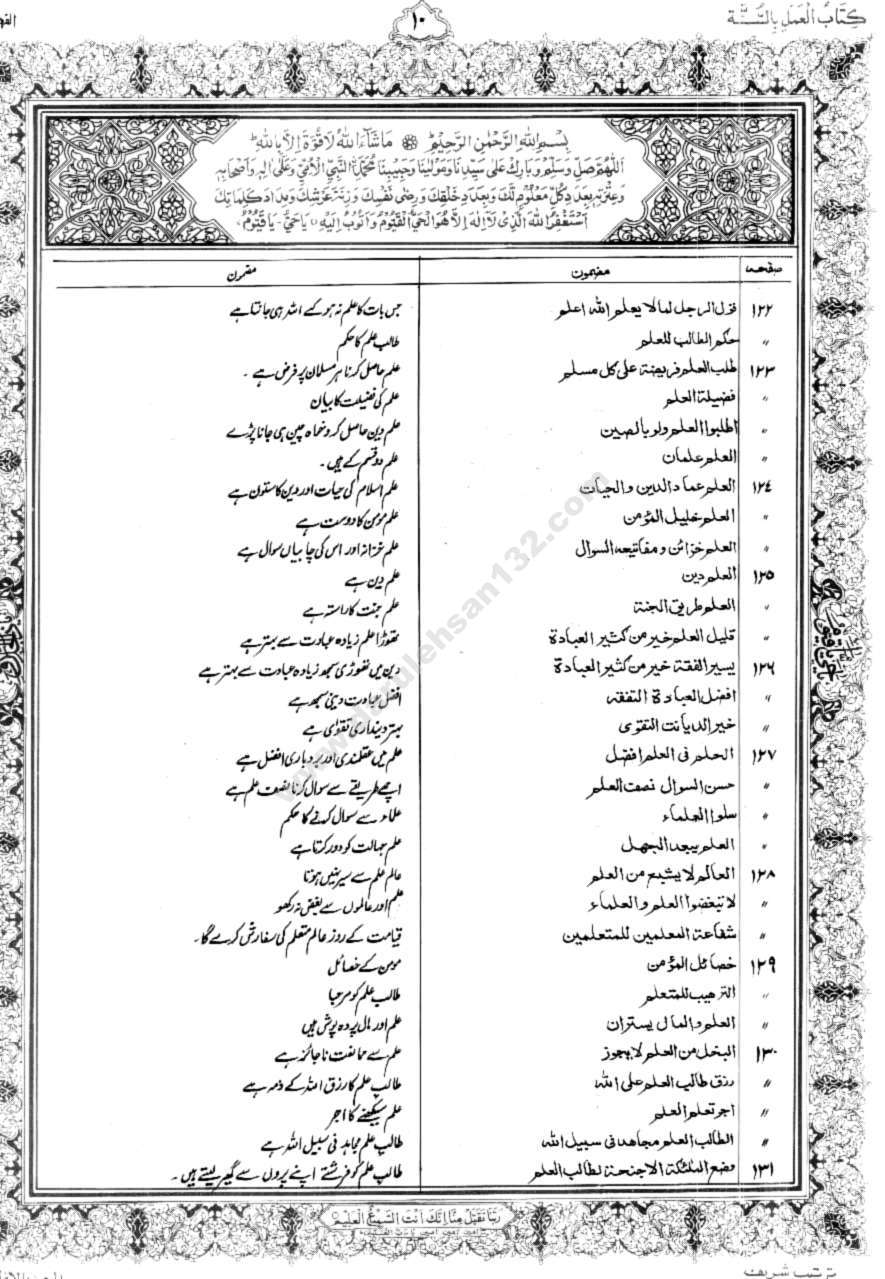 كِتَابُ الْعَمَلِ بِالسُّنَّة
١٠
بِسْمِ اللهِ الرَّحْمٰنِ الرَّحِيْمِ مَا شَآءَ اللهُ لَا قُوَّةَ اِلَّا بِاللهِ
اَللّٰهُمَّ صَلِّ وَسَلِّمْ وَبَارِكْ عَلٰى سَيِّدِنَا وَمَوْلٰينَا وَحَبِيْبِنَا مُحَمَّدِ نِ النَّبِيِّ الْاُمِّيِّ وَعَلٰى اٰلِهٖ وَاَصْحَابِهٖ
وَعِتْرَتِهٖ بِعَدَدِ كُلِّ مَعْلُوْمٍ لَّكَ وَبِعَدَدِ خَلْقِكَ وَرِضٰى نَفْسِكَ وَزِنَةَ عَرْشِكَ وَمِدَادَ كَلِمَاتِكَ
اَسْتَغْفِرُ اللهَ الَّذِىْ لَآ اِلٰهَ اِلَّا هُوَ الْحَىُّ الْقَيُّوْمُ وَاَتُوْبُ اِلَيْهِ يَا حَىُّ يَا قَيُّوْمُ
صفحہ مضمون مضمون
١٢٢ قول الرجل لما لا يعلم الله اعلم جس بات کا علم نہ ہو کہے اللہ ہی جانتا ہے
〃 حكم الطالب للعلم طالب علم کا حکم
١٢٣ طلب العلم فريضة على كل مسلم علم حاصل کرنا ہر مسلمان پر فرض ہے ۔
〃 فضيلة العلم علم کی فضیلت کا بیان
〃 اطلبوا العلم ولو بالصين علم دین حاصل کرو خواہ چین ہی جانا پڑے
〃 العلم علمان علم دو قسم کے ہیں ۔
١٢٤ العلم عماد الدين والحيات علم اسلام کی حیات اور دین کا ستون ہے
〃 العلم خليل المؤمن علم مومن کا دوست ہے
〃 العلم خزائن ومفاتيحه السوال علم خزانہ اور اس کی چابیاں سوال ہے
١٢٥ العلم دين علم دین ہے
〃 العلم طريق الجنة علم جنت کا راستہ ہے
〃 قليل العلم خير من كثير العبادة تھوڑا علم زیادہ عبادت سے بہتر ہے
١٢٦ يسير الفقه خير من كثير العبادة دین میں تھوڑی سمجھ زیادہ عبادت سے بہتر ہے
〃 افضل العبادة التفقه افضل عبادت دینی سمجھ ہے
〃 خير الديانت التقوى بہتر دینداری تقوٰی ہے
١٢٧ الحلم فى العلم افضل علم میں عقلمندی اور بردباری افضل ہے
〃 حسن السوال نصف العلم اچھے طریقے سے سوال کرنا نصف علم ہے
〃 سلوا العلماء علماء سے سوال کرنے کا حکم
〃 العلم يبعد الجهل علم جہالت کو دور کرتا ہے
١٢٨ العالم لا يشبع من العلم عالم علم سے سیر نہیں ہوتا
〃 لا تبغضوا العلم والعلماء علم اور عالموں سے بغض نہ رکھو
〃 شفاعة المعلمين للمتعلمين قیامت کے روز عالم متعلم کی سفارش کرے گا ۔
١٢٩ خصائل المؤمن مومن کے خصائل
〃 الترهيب للمتعلم طالب علم کو مرحبا
〃 العلم والمال يستران علم اور مال پردہ پوش ہیں
١٣٠ البخل من العلم لا يجوز علم سے ممانعت ناجائز ہے
〃 رزق طالب العلم على الله طالب علم کا رزق اللہ کے ذمہ ہے
〃 اجر تعلم العلم علم سیکھنے کا اجر
〃 الطالب العلم مجاهد فى سبيل الله طالب علم مجاہد فی سبیل اللہ ہے
١٣١ وضع الملئكة الاجنحة لطالب العلم طالب علم کو فرشتے اپنے پروں سے گھیر لیتے ہیں ۔
رَبَّنَا تَقَبَّلْ مِنَّا اِنَّكَ اَنْتَ السَّمِيْعُ الْعَلِيْمُ
ترتیب شریف